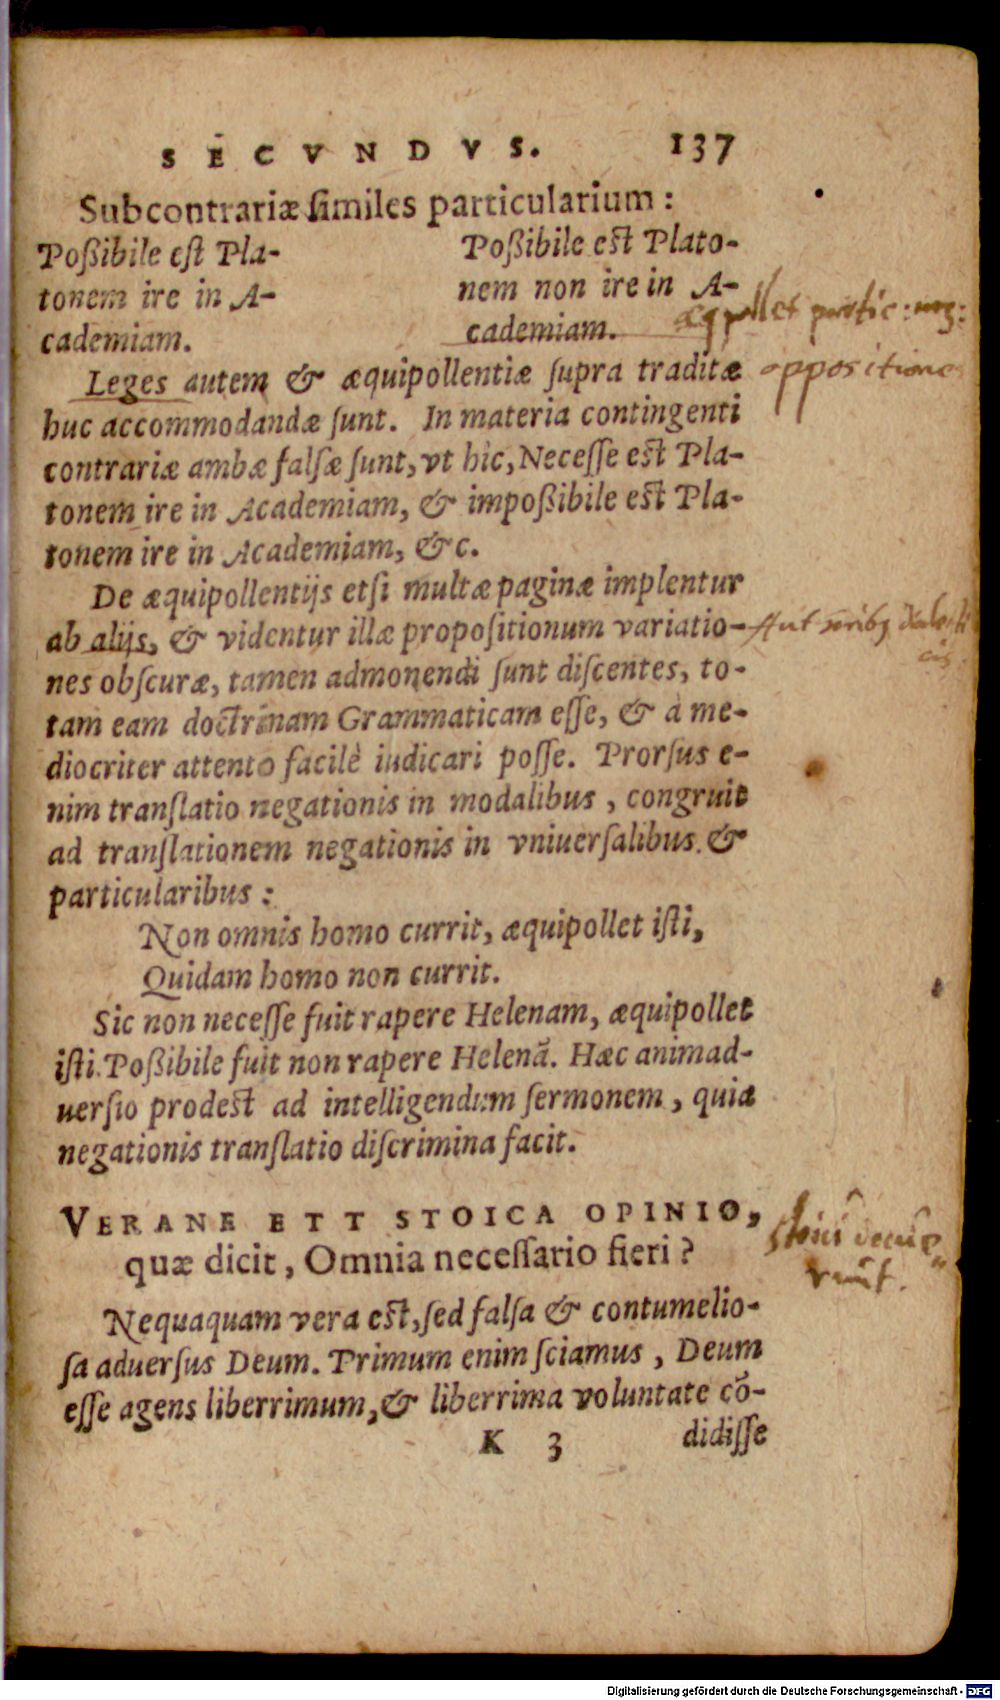 SECVNDVS. 137
Subcontrariæ similes particularium:
Poßibile est Pla-
tonem ire in A-
cademiam.
Poßibile est Plato-
nem non ire in A-
cademiam.
oppositione
Leges autem & æquipollentiæ supra traditæ
huc accommodandæ sunt. In materia contingenti
contrariæ ambæ falsæ sunt, vt hic, Necesse est Pla-
tonem ire in Academiam, & impoßibile est Pla-
tonem ire in Academiam, &c.
De æquipollentijs etsi multæ paginæ implentur
ab alijs, & videntur illæ propositionum variatio-
nes obscuræ, tamen admonendi sunt discentes, to-
tam eam doctrinam Grammaticam esse, & à me-
diocriter attento facilè iudicari posse. Prorsus e-
nim translatio negationis in modalibus, congruit
ad translationem negationis in vniuersalibus &
particularibus:
Non omnis homo currit, æquipollet isti,
Quidam homo non currit.
Sic non necesse fuit rapere Helenam, æquipollet
isti. Poßibile fuit non rapere Helenā. Hæc animad-
uersio prodest ad intelligendum sermonem, quia
negationis translatio discrimina facit.
VERANE ETT STOICA OPINIO,
quæ dicit, Omnia necessario fieri?
Nequaquam vera est, sed falsa & contumelio-
sa aduersus Deum. Primum enim sciamus, Deum
esse agens liberrimum, & liberrima voluntate cō-
K 3 didisse
Digitalisierung gefördert durch die Deutsche Forschungsgemeinschaft - DFG